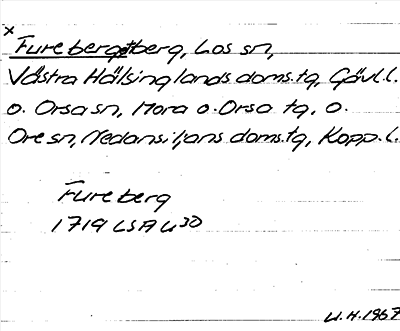 x
Fureberg berg, Los sn,
Västra Hälsinglands doms.tg, Gävl.l.
o. Orsa sn, Mora o. Orsa tg, o.
Ore sn, Nedansiljans doms.tg, Kopp.l.
Fureberg
1719 LSA U30
U.H. 1967